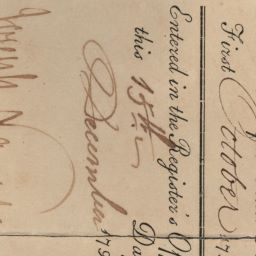 First October 179
Entered in the Register's O
this 15th Da
December 179
Joseph